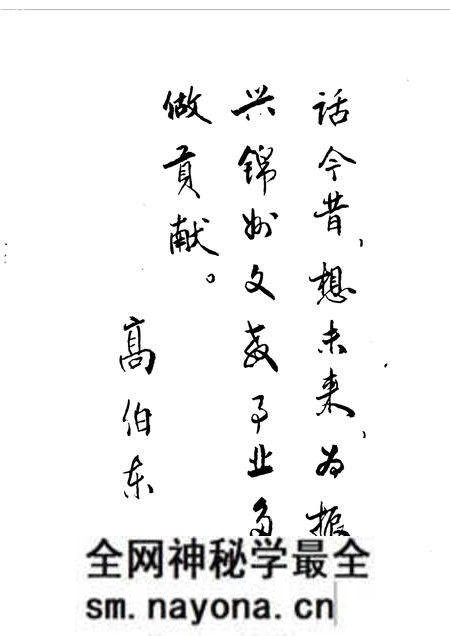 话今昔、想未来、为振
兴锦州文教事业多
做贡献。
高伯东
全网神秘学最全
sm.nayona.cn